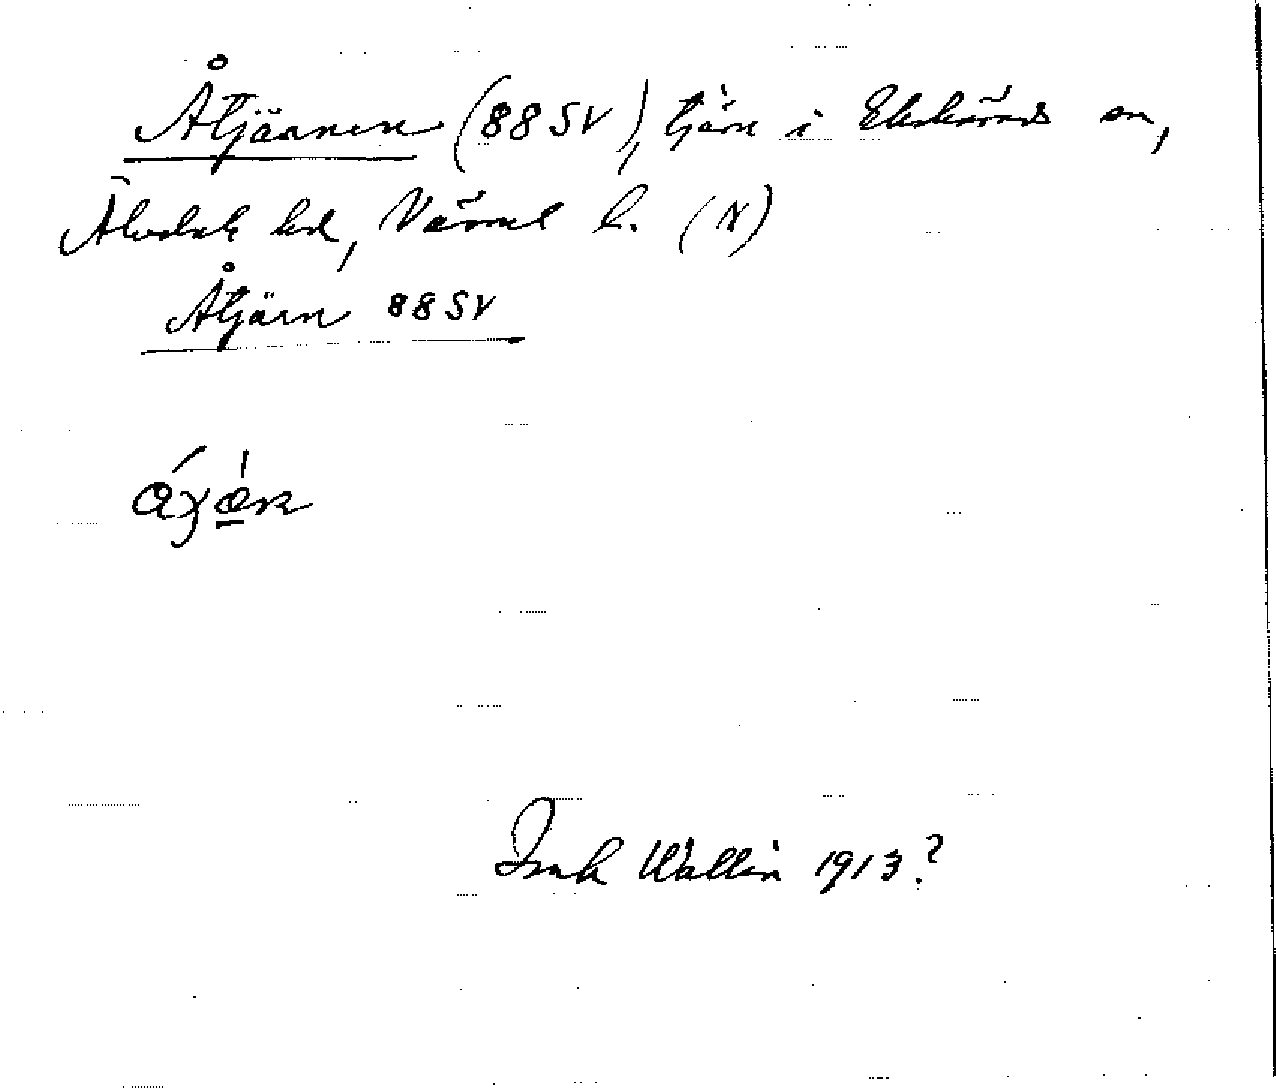 Åtjärnen (88 SV), tjärn i Ekshärads sn,
Älvdals hd, Värml l. (N)
Åtjärn 88 SV
Isak Wallin 1913?